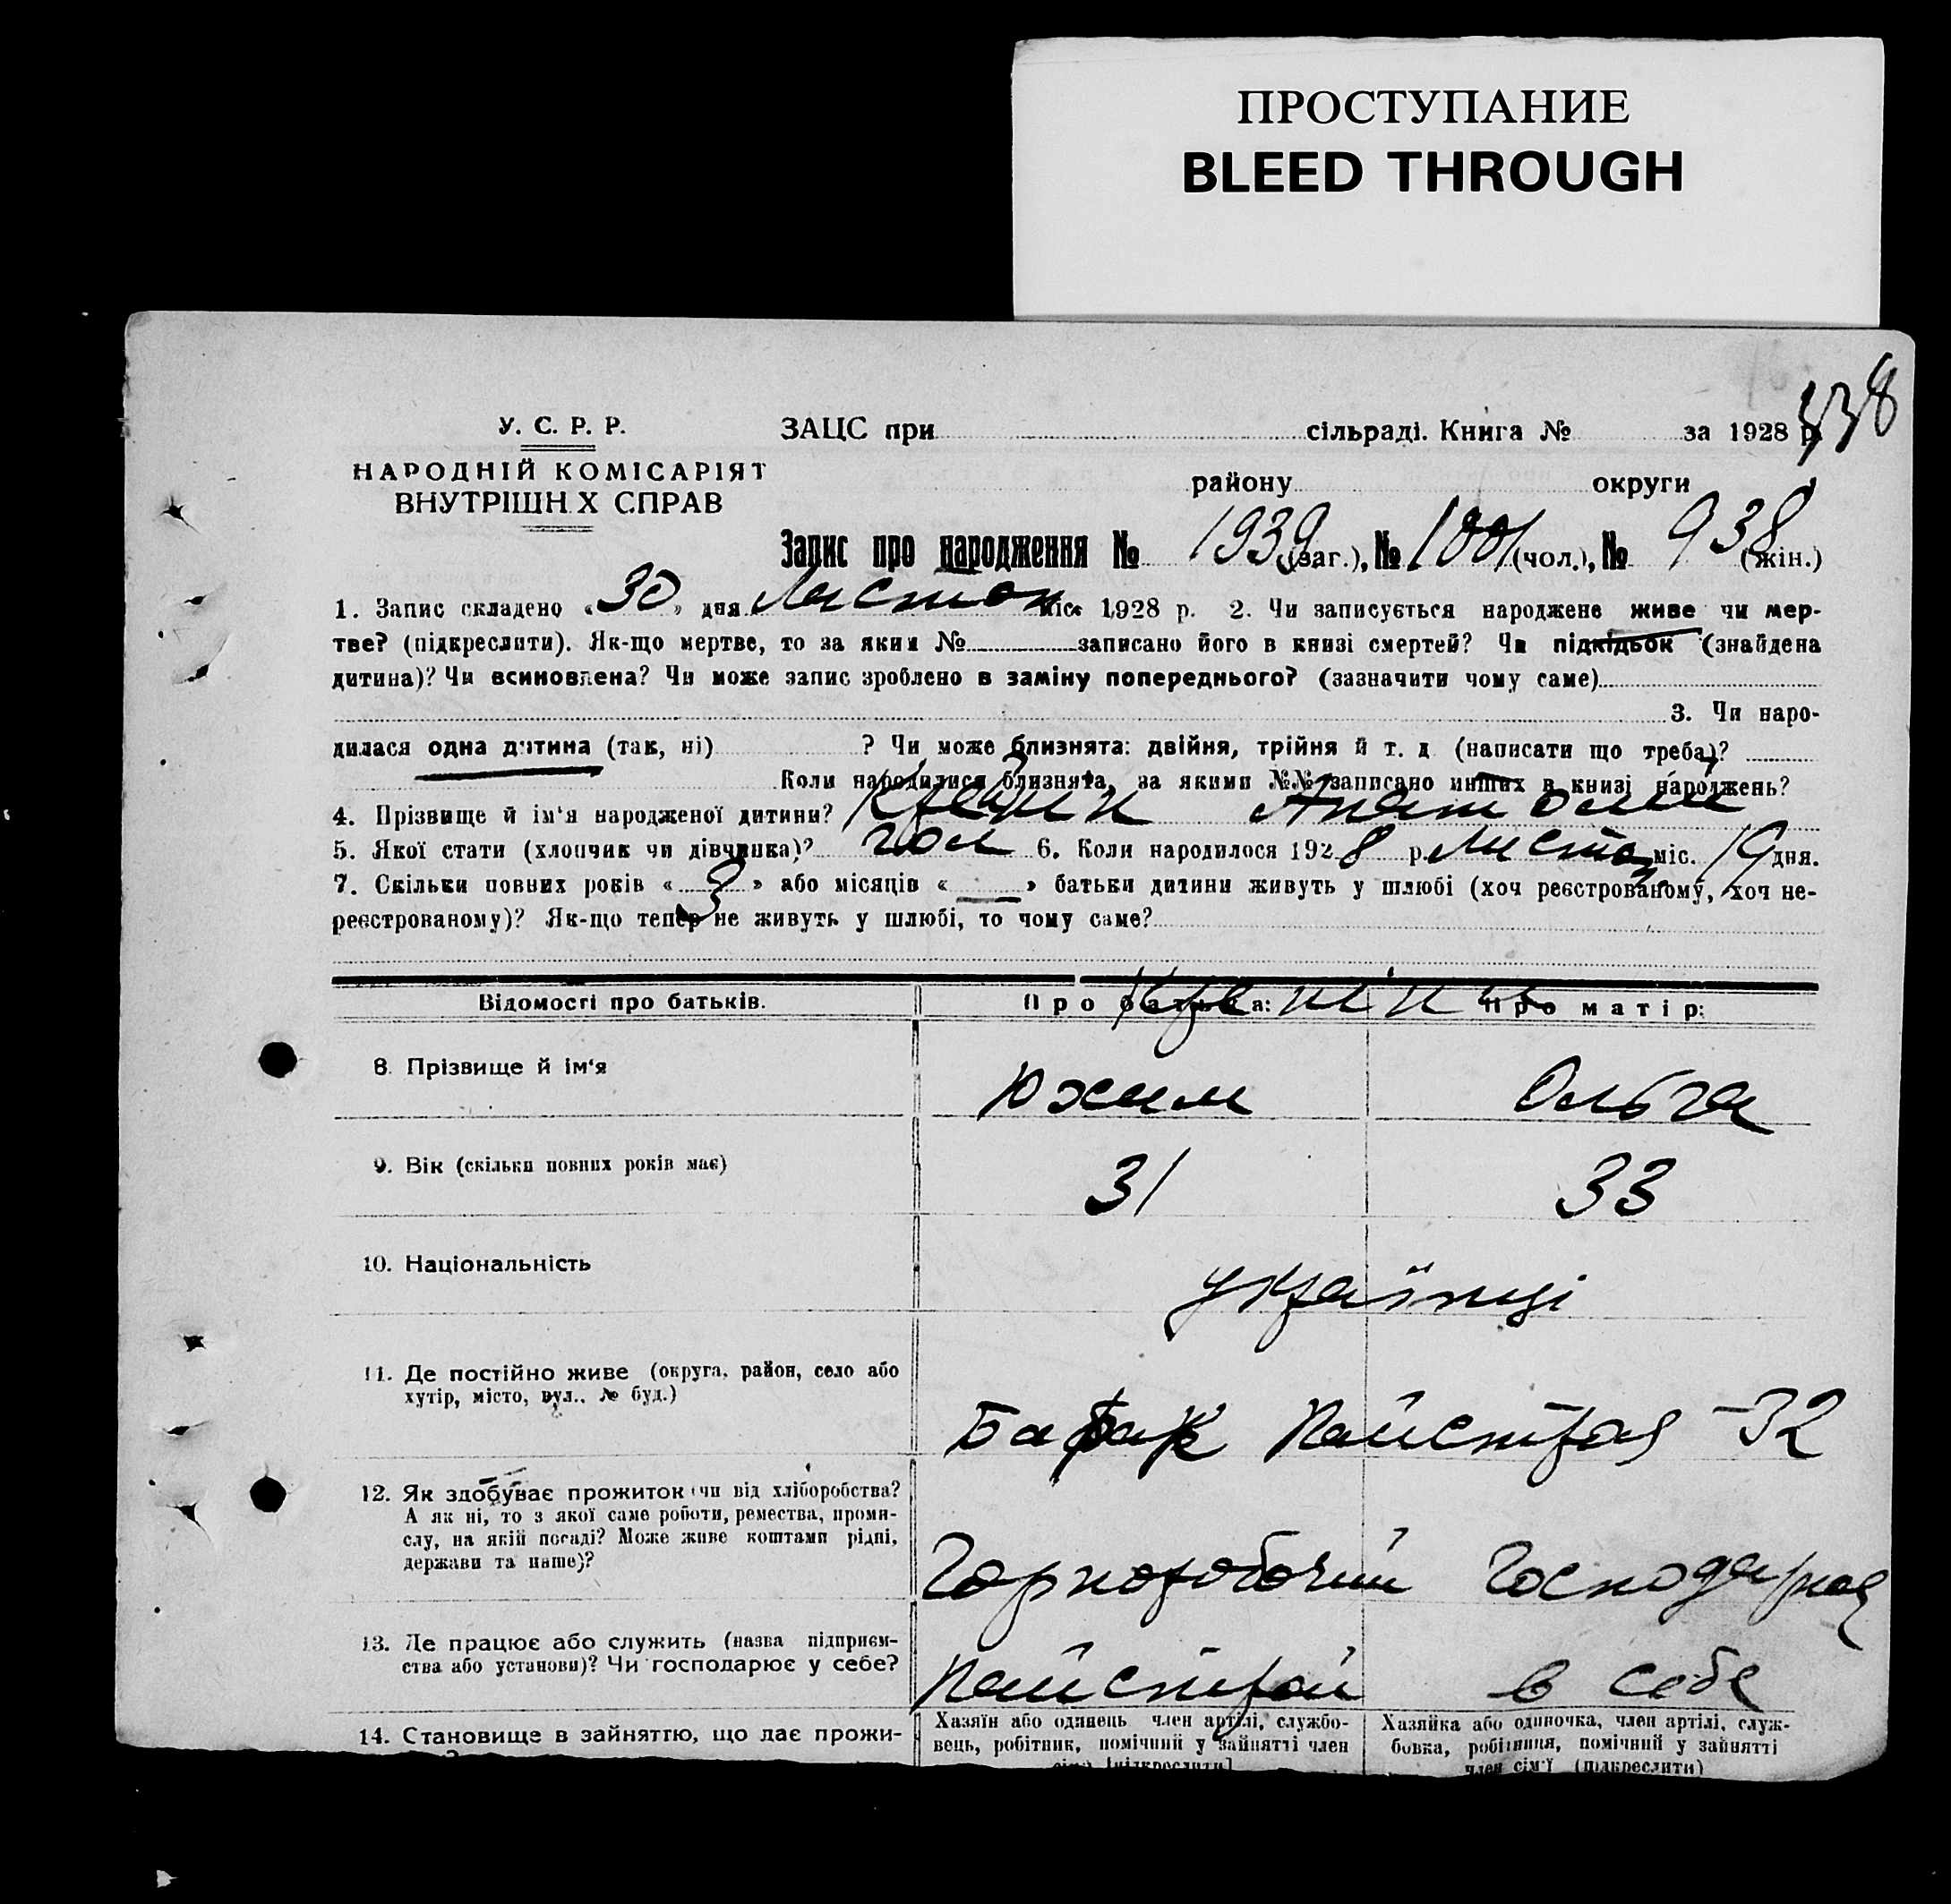 ПРОСТУПАНИЕ
BLEED THROUGH
338
У. С. Р. Р.
НАРОДНІЙ КОМІСАРІЯТ
ВНУТРІШН Х СПРАВ
ЗАЦС при сільраді. Книга № за 1928 р.
району округи
Запис про народження № 1939 (заг.), № 1001 (чол.), № 938 (жін.)
1. Запис складено «30» дня Листоп міс. 1928 р. 2. Чи записується народжене живе чи мер-
тве? (підкреслити). Як-що мертве, то за яким № записано його в книзі смертей? Чи підкідьок (знайдена
дитина)? Чи всиновлена? Чи може запис зроблено в заміну попереднього? (зазначити чому саме)
3. Чи наро-
дилася одна дитина (так, ні) ? Чи може близнята: двійня, трійня й т. д (написати що треба)?
Коли народилися близнята, за якими №№ записано инших в книзі народжень?
4. Прізвище й ім'я народженої дитини? Анатолій
5. Якої стати (хлопчик чи дівчинка)? чол 6. Коли народилося 1928 р. Листоп міс. 19 дня.
7. Скільки повних років «3» або місяців « » батьки дитини живуть у шлюбі (хоч реєстрованому, хоч не-
реєстрованому)? Як-що тепер не живуть у шлюбі, то чому саме?
Відомості про батьків. Про батька: Про матір:
8. Прізвище й ім'я Юхим Ольга
9. Вік (скільки повних років має) 31 33
10. Національність українці
11. Де постійно живе (округа, район, село або
хутір, місто, вул., № буд.)
Барак 32
12. Як здобуває прожиток чи від хліборобства?
А як ні, то з якої саме роботи, ремества, проми-
слу, на якій посаді? Може живе коштами рідні,
держави та инше)?
Чорноробочий Господарка
13. Де працює або служить (назва підприєм-
ства або установи)? Чи господарює у себе?
в себе
14. Становище в зайняттю, що дає прожи-
Хазяїн або одинець член артілі, службо-
вець, робітник, помічний у зайнятті член
сім'ї [підкреслити]
Хазяйка або одиночка, член артілі, служ-
бовка, робітниця, помічний у зайнятті
член сім'ї (підкреслити)